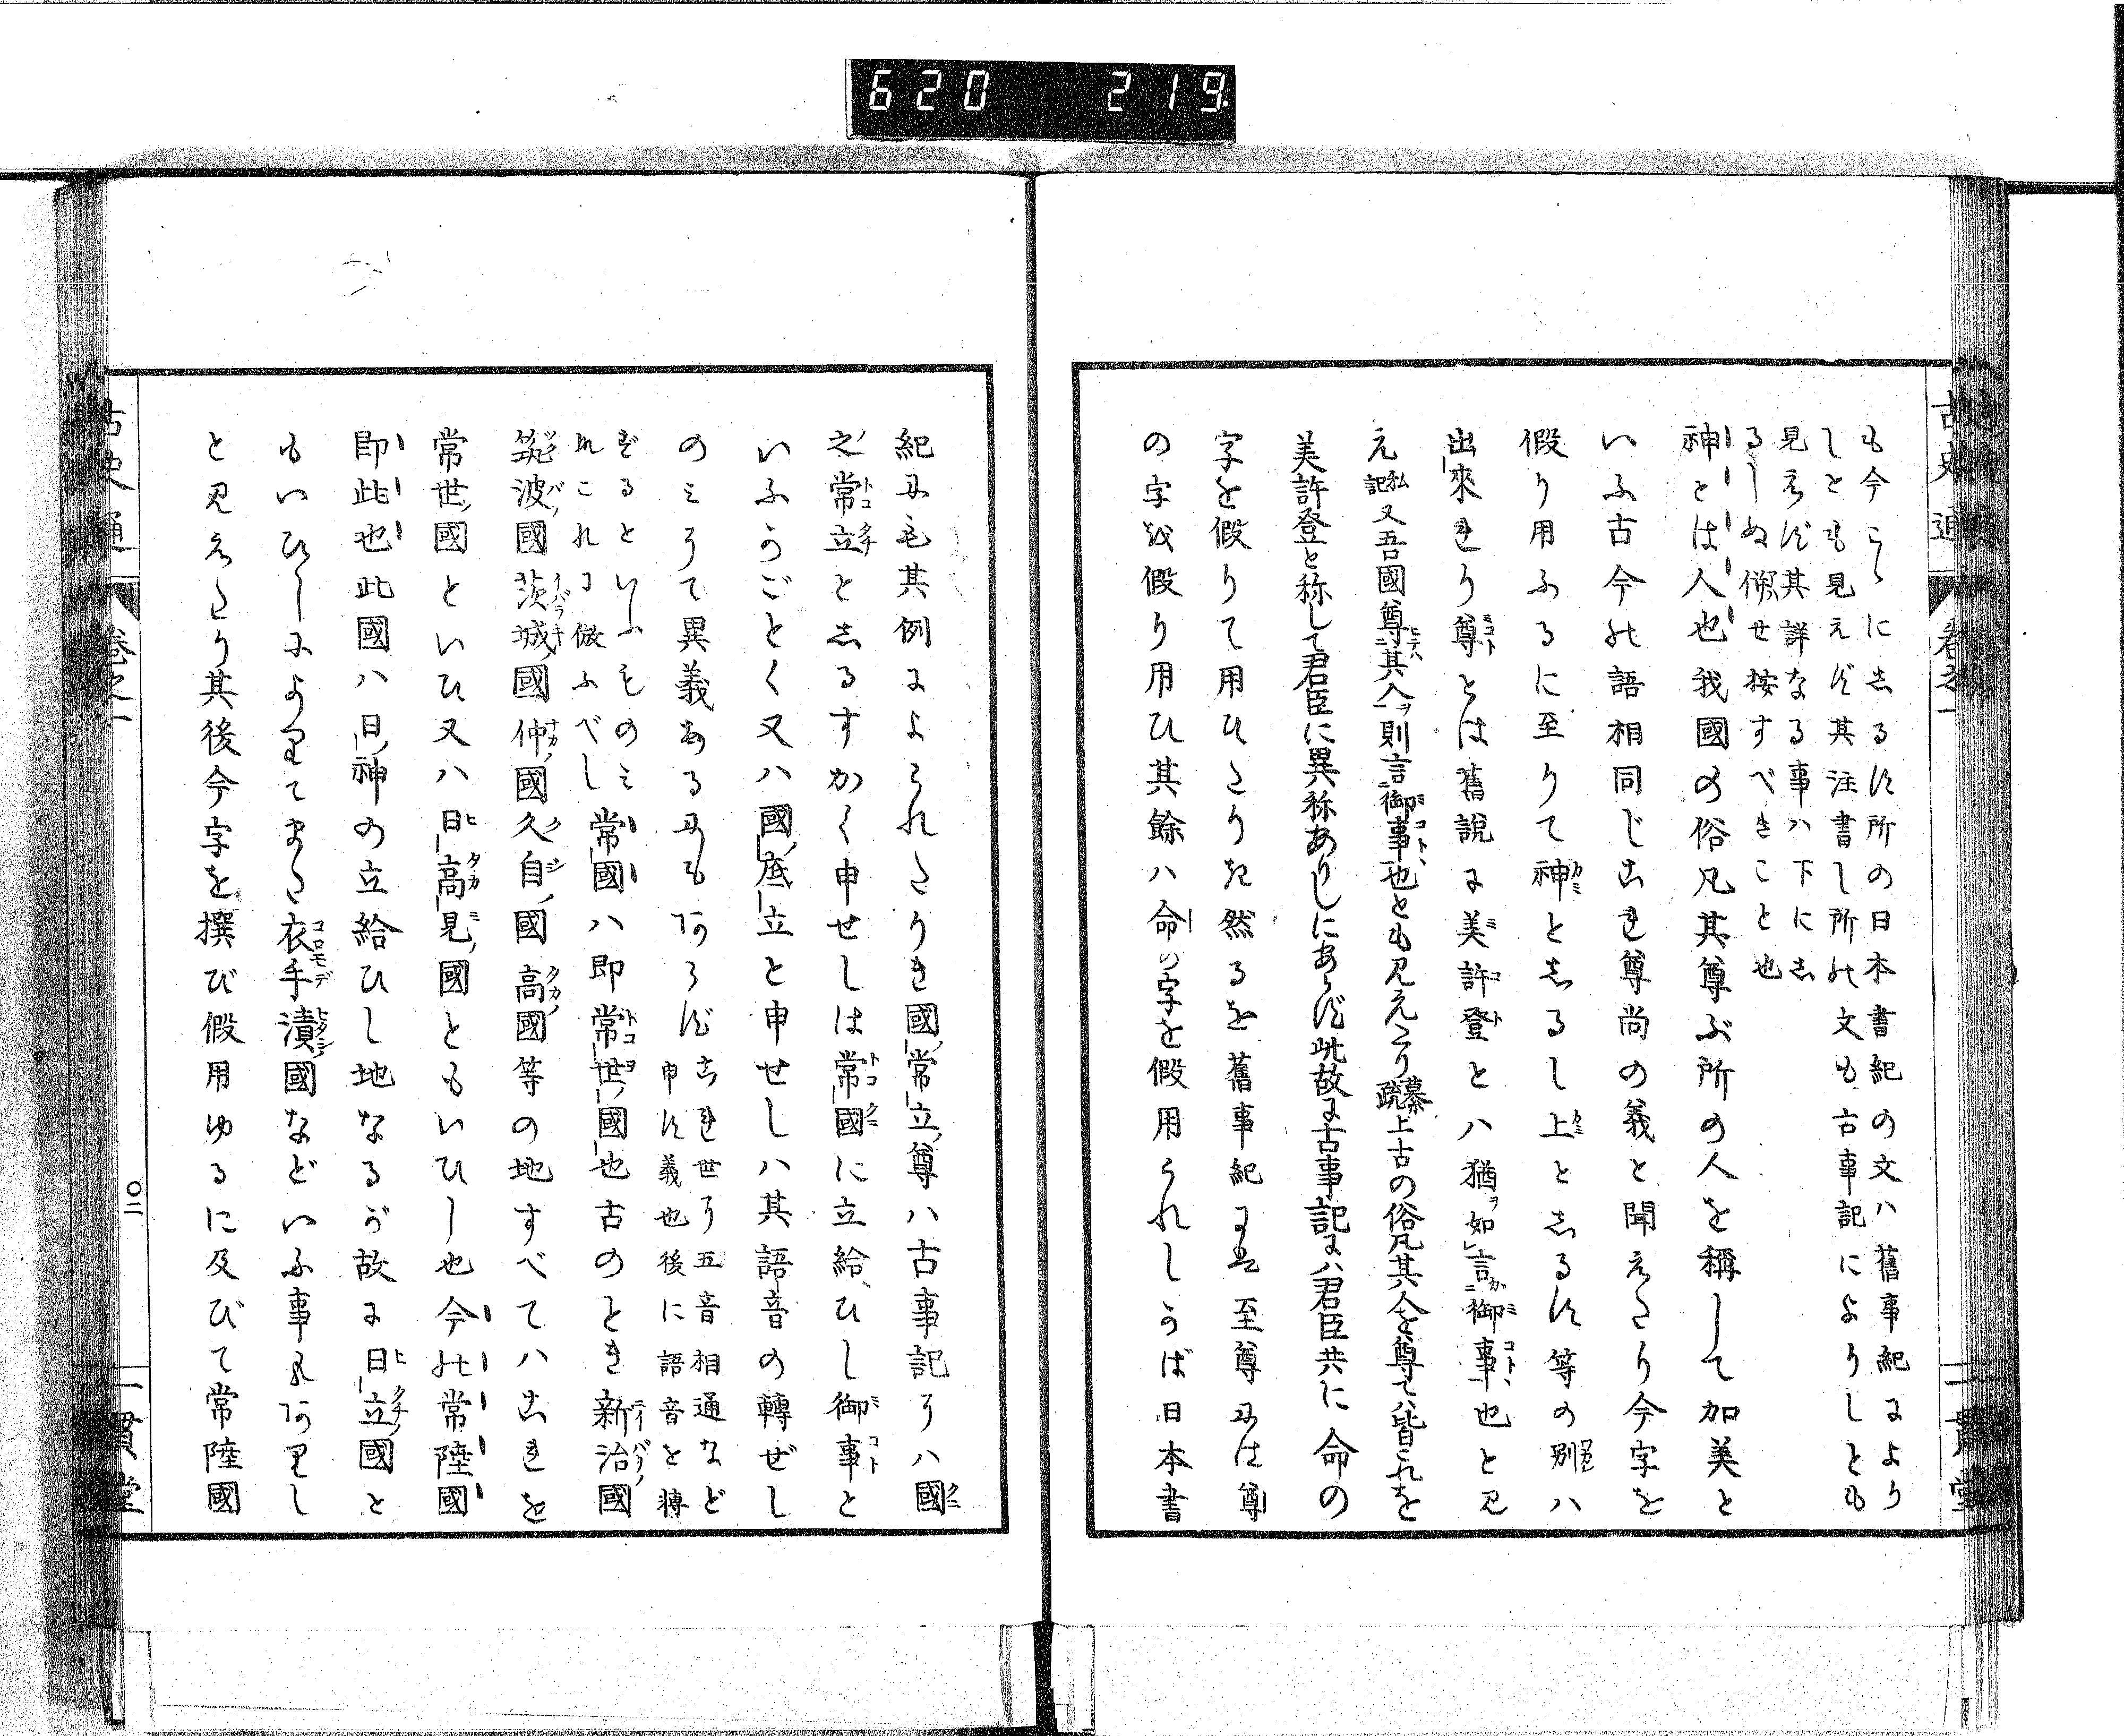 620 219
古史通
卷之一
一貫堂
も今こゝにしるす所の日本書紀の文ハ舊事紀によりしとも見えず其注書し所の文も古事記によりしとも
見えず其詳なる事ハ下にしるしぬ併せ按すべきこと也
神とは人也我國の俗凡其尊ぶ所の人を稱して加美と
いふ古今の語相同じこれ尊尚の義と聞えたり今字を
假り用ふるに至りて神としるし上としるす等の別ハ
出來れり尊とは舊說に美許登とハ猶如言御事也と見
え私記又吾國尊其人則言御事也とも見えたり纂疏上古の俗凡其人を尊てハ皆これを
美許登と称して君臣に異称ありしにあらず此故に古事記にハ君臣共に命の
字を假りて用ひたりき然るを舊事紀には至尊には尊
の字を假り用ひ其餘ハ命の字を假用られしかば日本書
紀にも其例によられたりき國常立尊ハ古事記にハ國
之常立としるすかく申せしは常國に立給ひし御事と
いふかごとく又ハ國底立と申せしハ其語音の轉ぜし
のミにて異義あるにもあらずこれ世に五音相通など申す義也後に語音を轉
ずるといふものミなこれに倣ふべし常國ハ即常世國也古のとき新治國
筑波國茨城國仲國久自國高國等の地すべてハこれを
常世國といひ又ハ日高見國ともいひし也今の常陸國
即此也此國ハ日神の立給ひし地なるが故に日立國と
もいひしによりてまた衣手漬國などいふ事もありし
と見えたり其後今字を撰び假用ゆるに及びて常陸國
古史通
卷之一
〇二
一貫堂